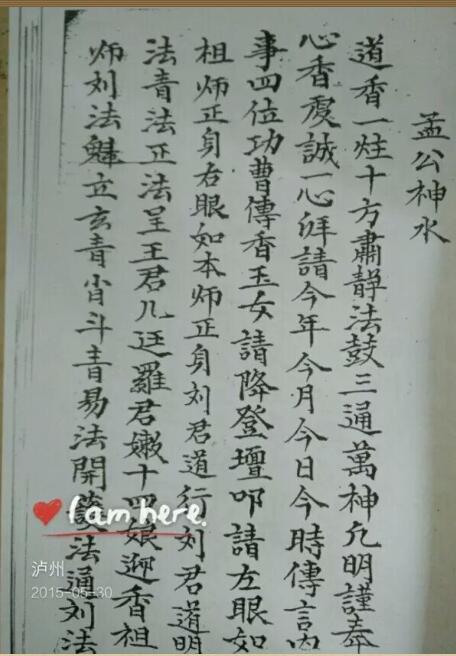 孟公神水
道香一炷十方肅静法鼓三通萬神允明謹奉
心香虔誠一心拜請今年今月今日今時傳言内
事四位功曹傳香玉女請降登壇叩請左眼如
祖师正身右眼如本师正身刘君道行刘君道明
法青法正法呈王君儿廷羅君嫩十四娘迎香祖
师刘法魁立玄青肖斗青易法開談法通刘法
I am here.
泸州
2015-05-30